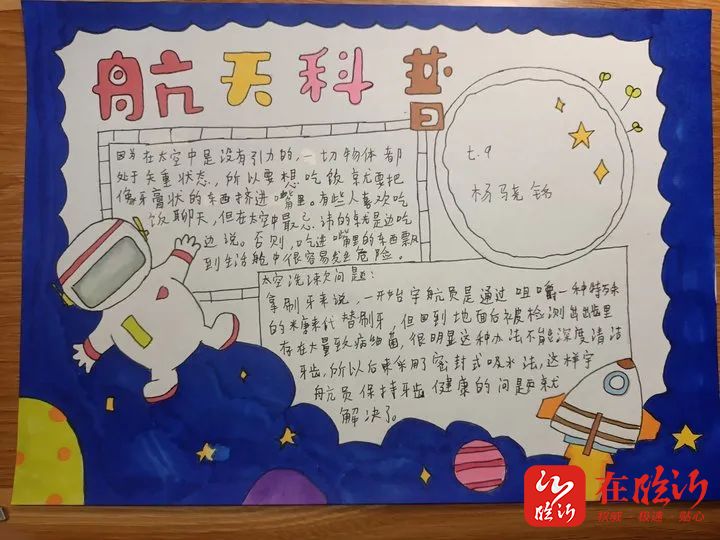 航天科普
因为在太空中是没有引力的,一切物体都
处于失重状态,所以要想吃饭就要把
像牙膏状的东西挤进嘴里。有些人喜欢吃
饭聊天,但在太空中最忌讳的就是边吃
边说。否则,吃进嘴里的东西飘
到生活舱中很容易发生危险。
七.9
杨骁铭
太空洗漱问题:
拿刷牙来说,一开始宇航员是通过咀嚼一种特殊
的糖来代替刷牙,但回到地面后被检测出出齿里
存在大量致病细菌,很明显这种办法不能深度清洁
牙齿,所以后来采用了密封式吸水法,这样宇
航员保持牙齿健康的问题就
解决了。
在临沂
权威 极速 贴心